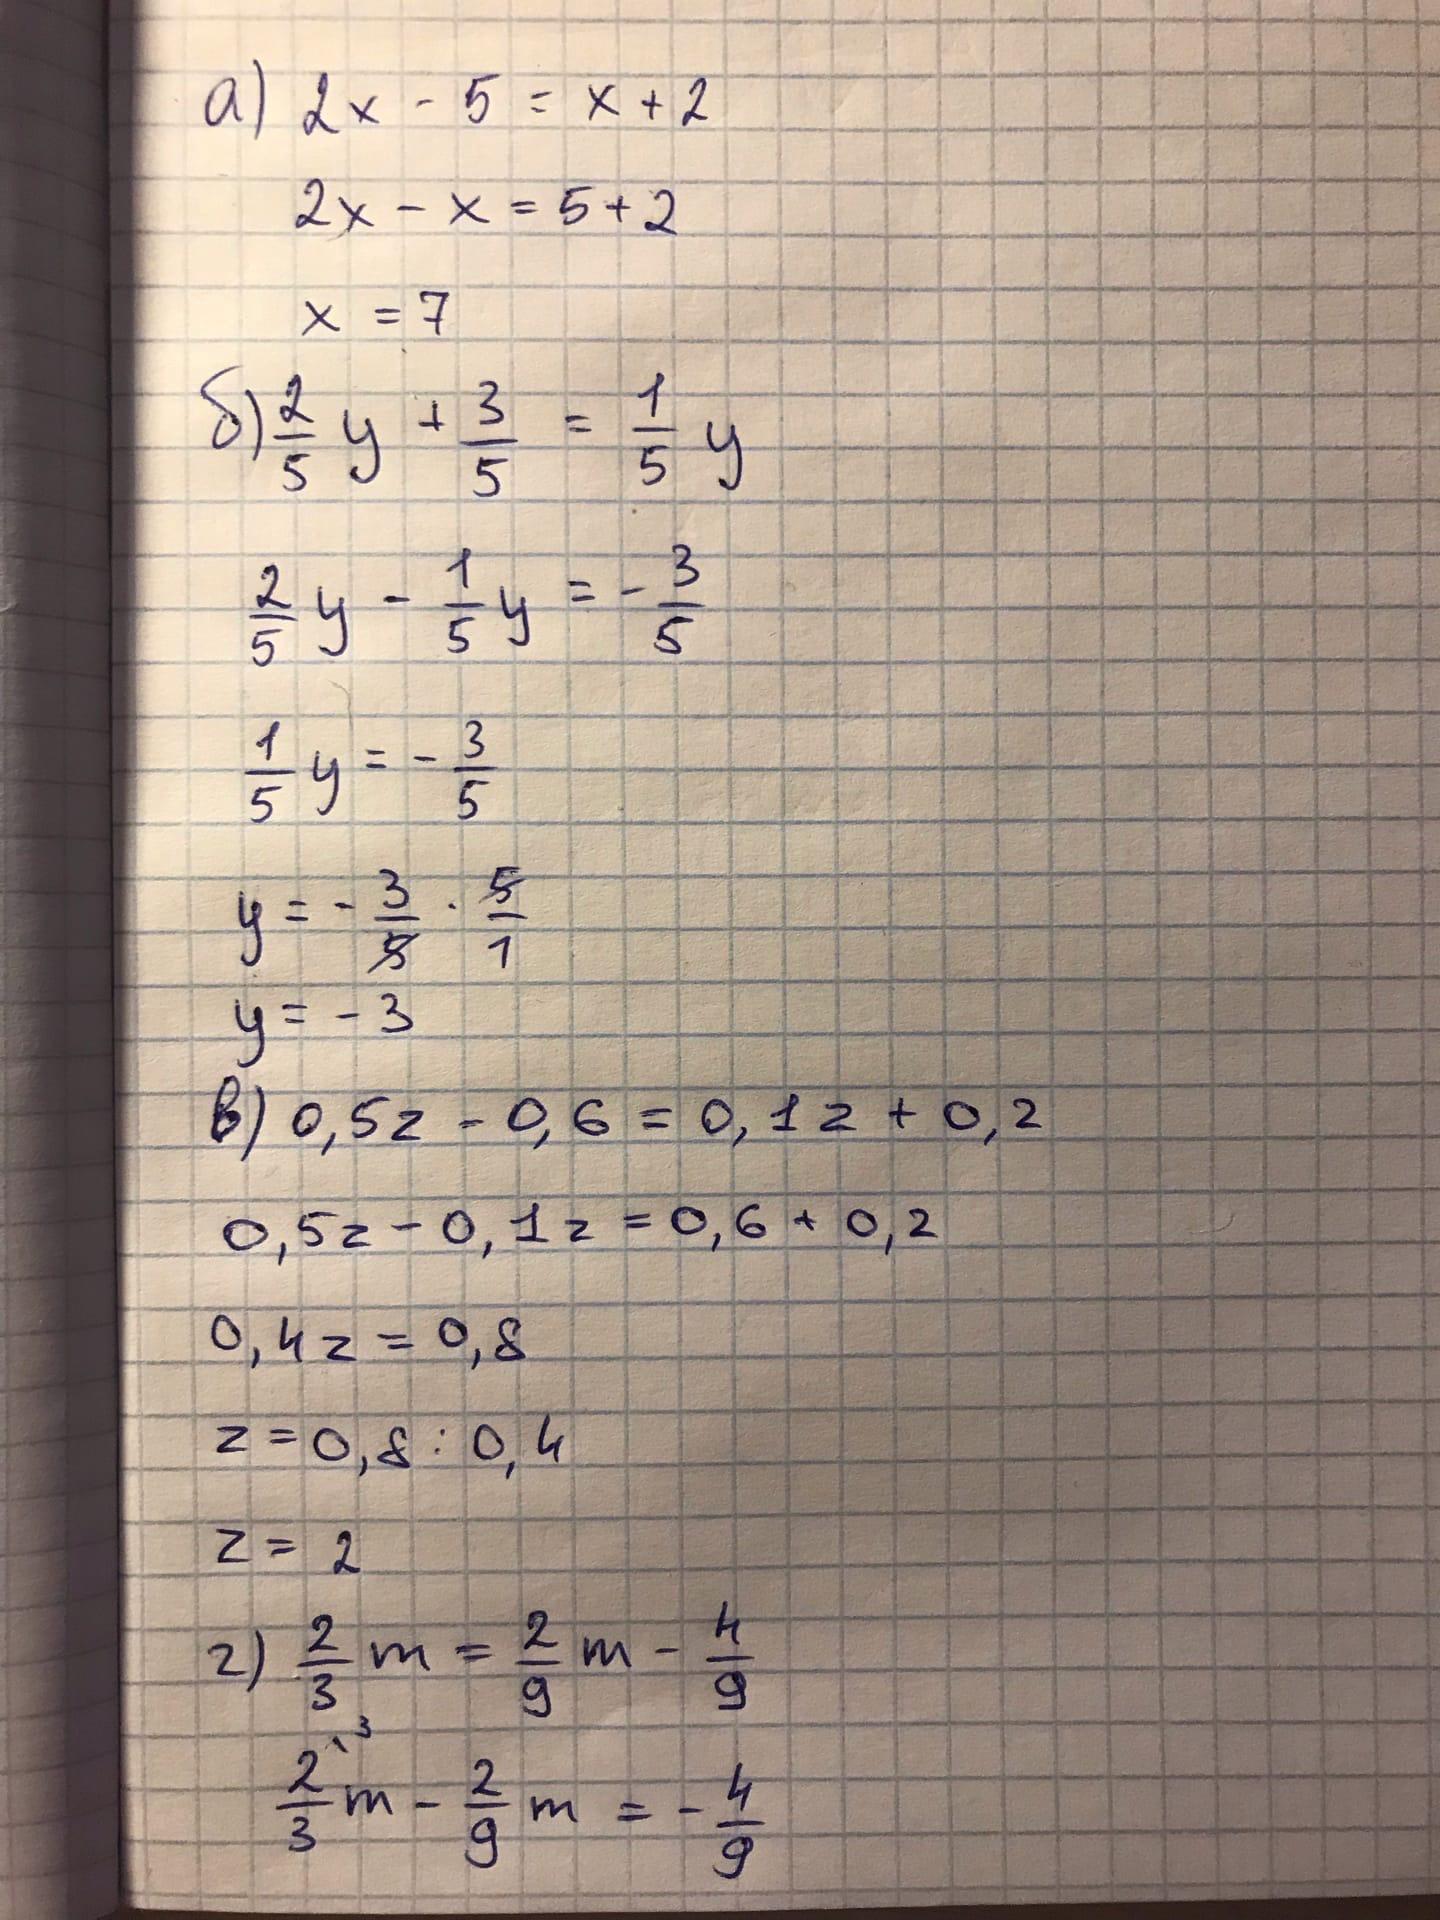 а) 2x - 5 = x + 2
2x - x = 5 + 2
x = 7
б) 2/5 y + 3/5 = 1/5 y
2/5 y - 1/5 y = - 3/5
1/5 y = - 3/5
y = - 3/5 · 5/1
y = - 3
в) 0,5z - 0,6 = 0,1z + 0,2
0,5z - 0,1z = 0,6 + 0,2
0,4z = 0,8
z = 0,8 : 0,4
z = 2
г) 2/3 m = 2/9 m - 4/9
2/3 \3 m - 2/9 m = - 4/9